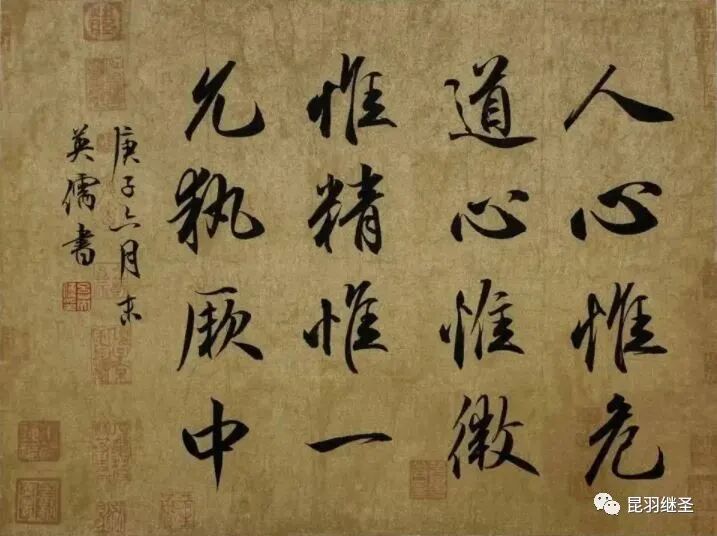 人心惟危
道心惟微
惟精惟一
允执厥中
庚子六月末
英儒書
昆羽继圣